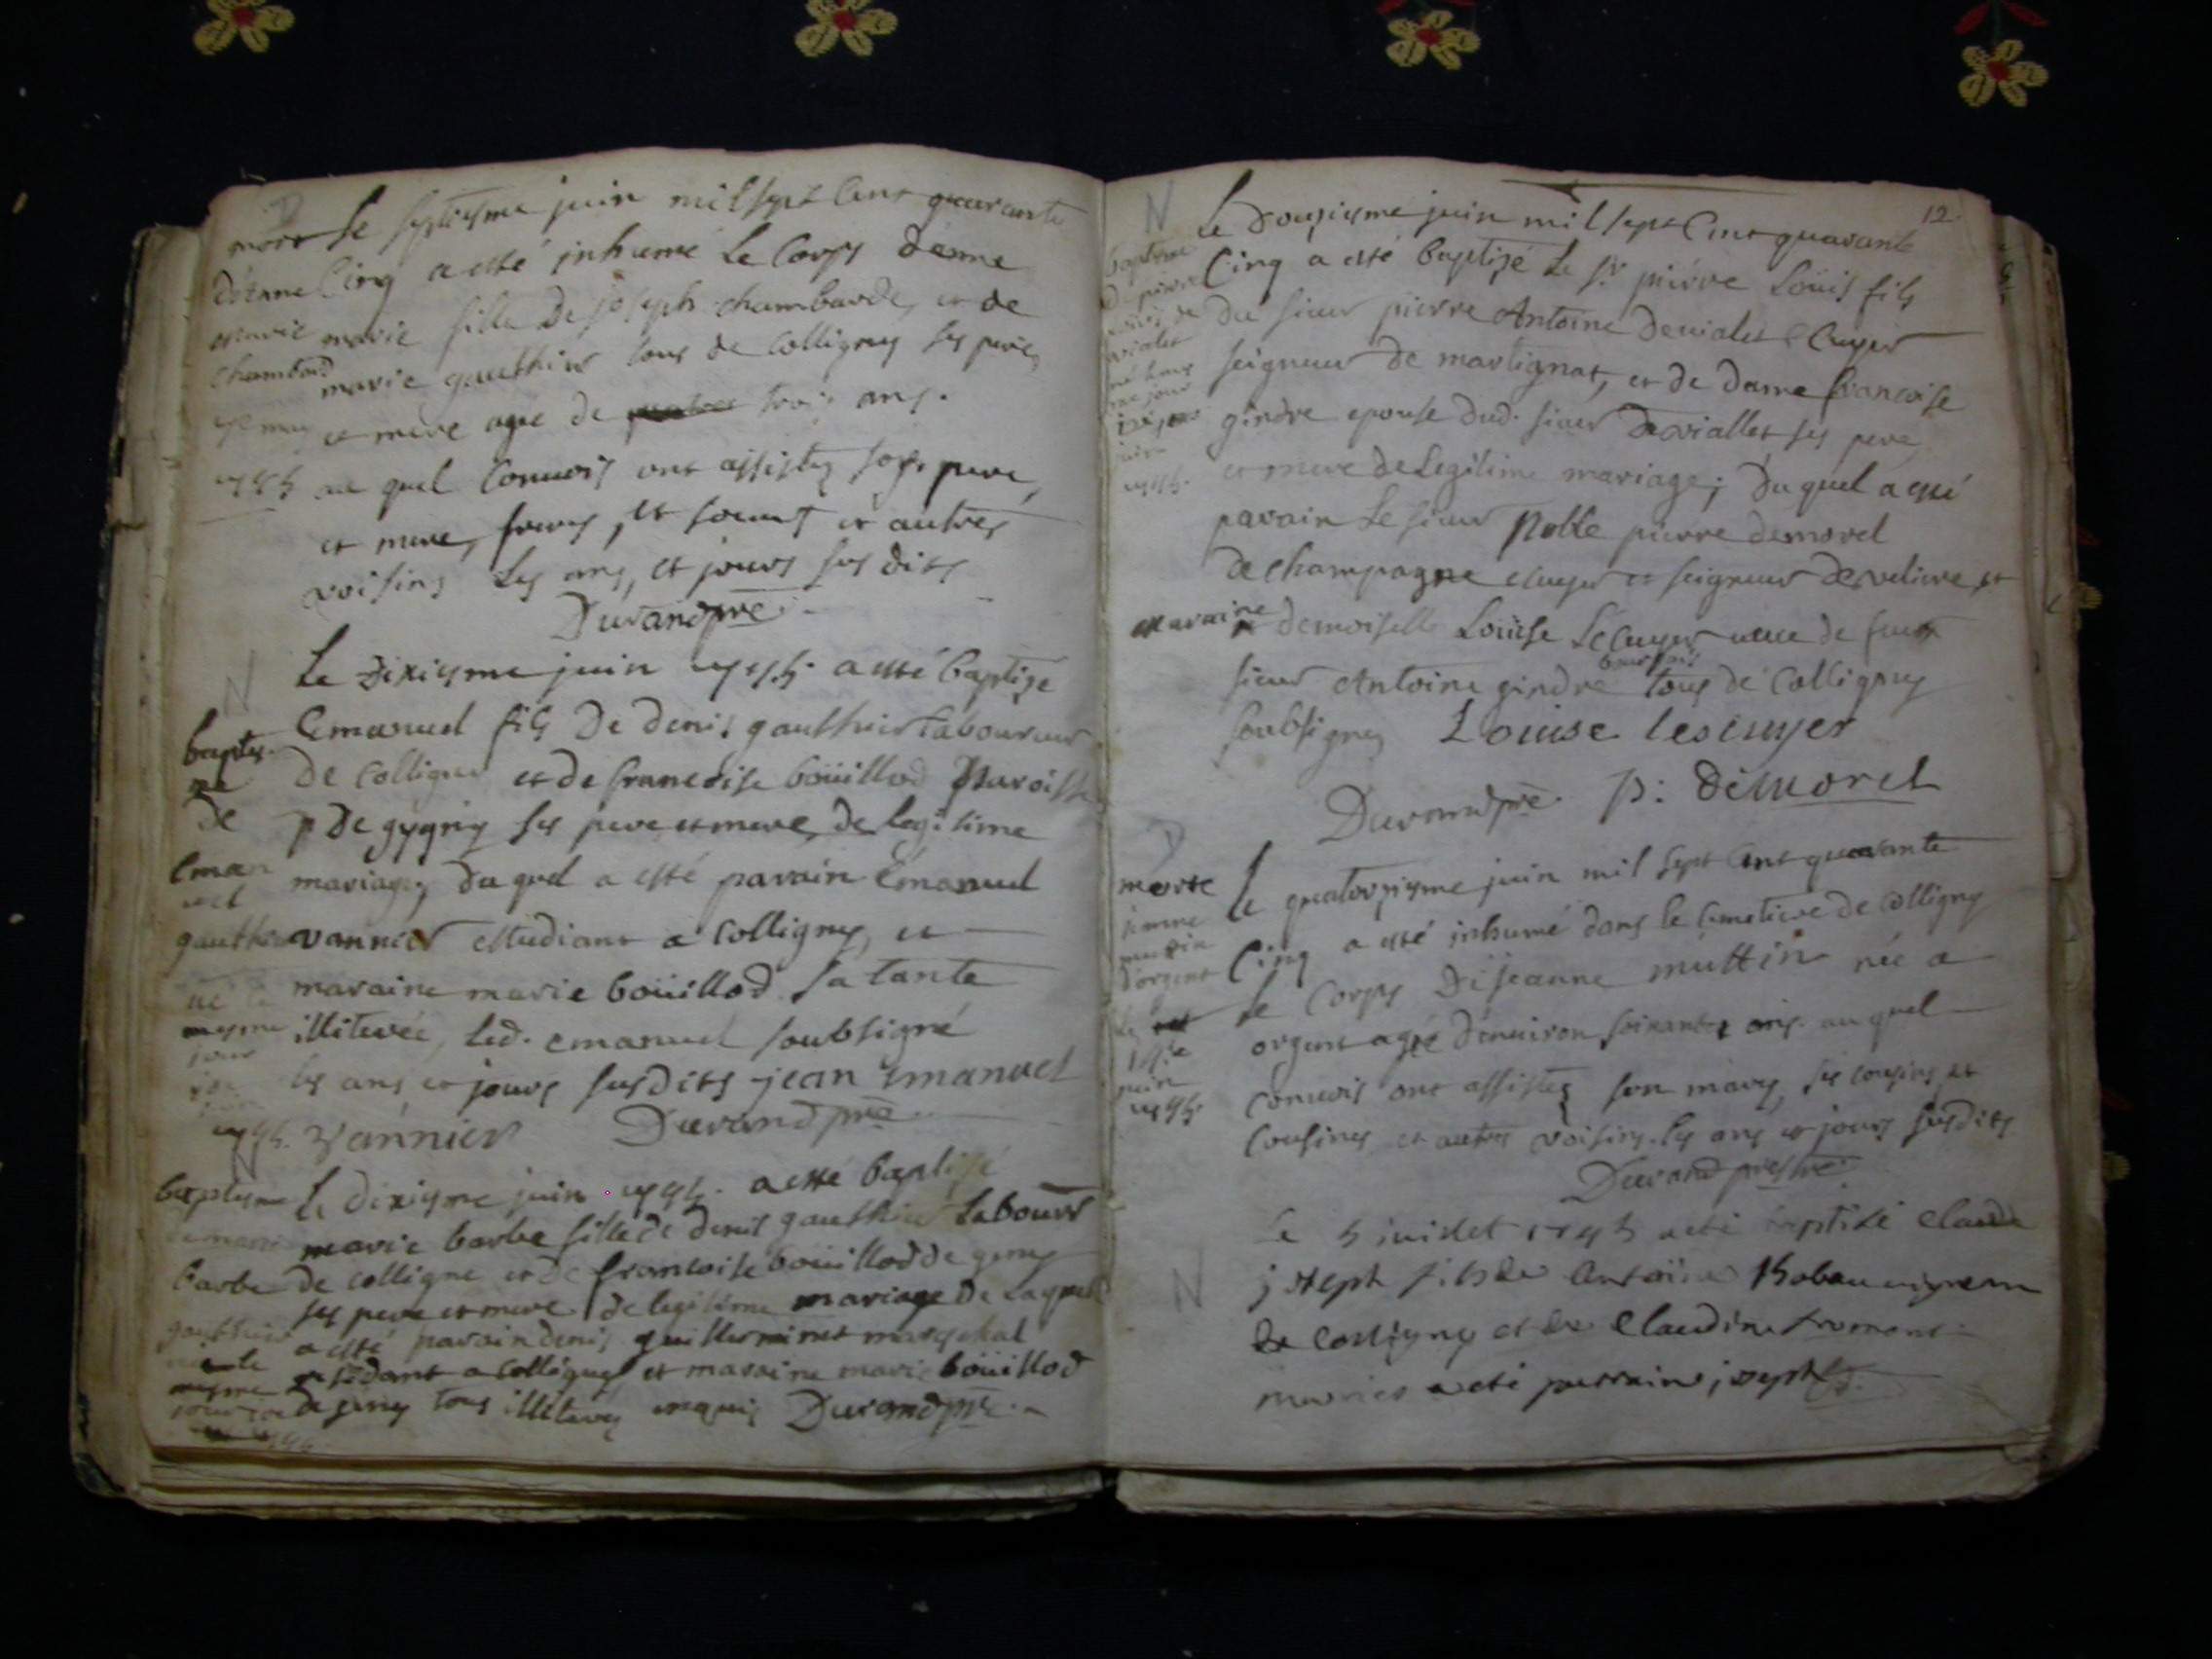 D
mort
d'enne
marie
chambard
Le septiesme juin mil sept Cent quarante
Cinq a esté inhumé Le Corps d'enne
marie fille De joseph chambarde, et de
marie gauthier tous de Colligny ses pere,
et mere agée de trois ans.
au quel Convois ont assistez ses pere,
et mere, freres, et soeurs et autres
voisins Les ans, et jours sus dits
Durand pre
N
baptes-
me
de
Eman
uel
gauthier
né le
mesme
jour
Le Dixiesme juin 1745. a esté Baptizé
Emanuel fils De denis gauthier Laboureur
de Colligna et de francoise boüillod Paroisse
de gygny ses pere et mere de legitime
mariage, du quel a esté parain Emanuel
vannier estudiant a Colligny, et
maraine marie boüillod sa tante
illiterée, led. emanuel soubsigné
les ans et jours susdits jean Emanuel
vannier Durand pre
N
baptesme
de marie
barbe
gauthier
née le
mesme
Le dixiesme juin 1745. a esté baptisé
marie barbe fille de denis gauthier Labour
de colligna et de francoise boüillod de geny
ses pere et mere de legitime mariage De Laquel
a esté parain denis guillerminet mareschal
residant a Colligny et maraine marie boüillod
de geny tous illiterez enquis Durand pre
12
N
baptesme
d pierre
Loüis de
vialet
Le Douziesme juin mil sept Cent quarante
Cinq a esté Baptizé Le Sr pierre Loüis fils
du sieur pierre Antoine Devialet Ecuyer
seigneur de martignat, et de Dame francoise
gindre epouse dud. sieur Devialles ses pere
et mere de Legitime mariage; du quel a esté
parain Le sieur Noble pierre demorel
de champagne ecuyer et seigneur de veliere et
maraine demoiselle Loüise Lécuyer veue de feu
sieur Antoine gindre bourgois tous de Colligny
soubsignez Louise lescuyer
Durand pre P: Démorel
D
morte
jeanne
muttin
d'orgent
14e
juin
1745.
Le quatorziesme juin mil sept Cent quarante
Cinq a esté inhumé dans le Cimetiere de Colligny
Le Corps de jeanne muttin née a
orgent agée d'environ soixante ans. au quel
convois ont assistez son mary, ses cousins et
cousines et autres voisins. les ans et jours susdits
Durand prestre
N
Le 5 juillet 1745 a eté baptisé Claude
joseph fils de Antoine Robeau vigneron
de Colligny et de Claudine fromont
mariés a eté parrain joseph